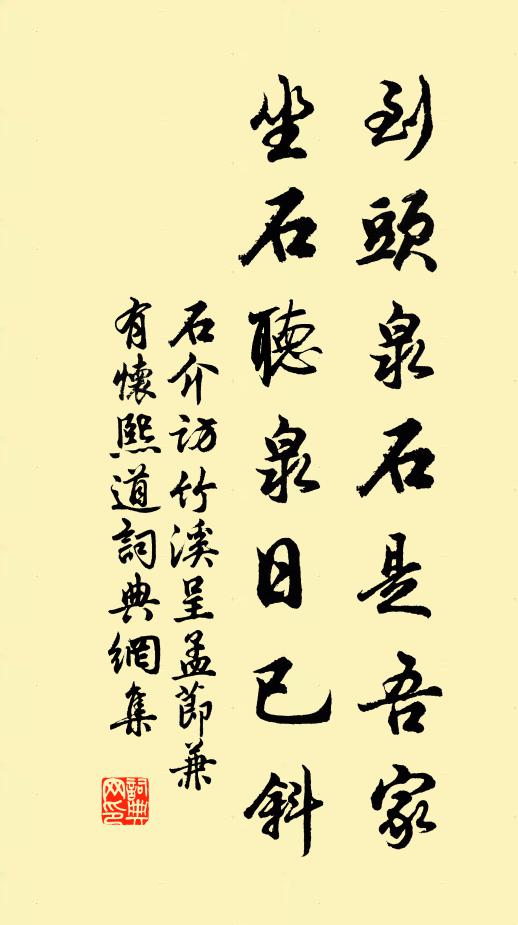 到頭泉石是吾家
坐石聽泉日已斜
石介訪竹溪呈孟節兼
有懷熙道詞典網集
詞典网印